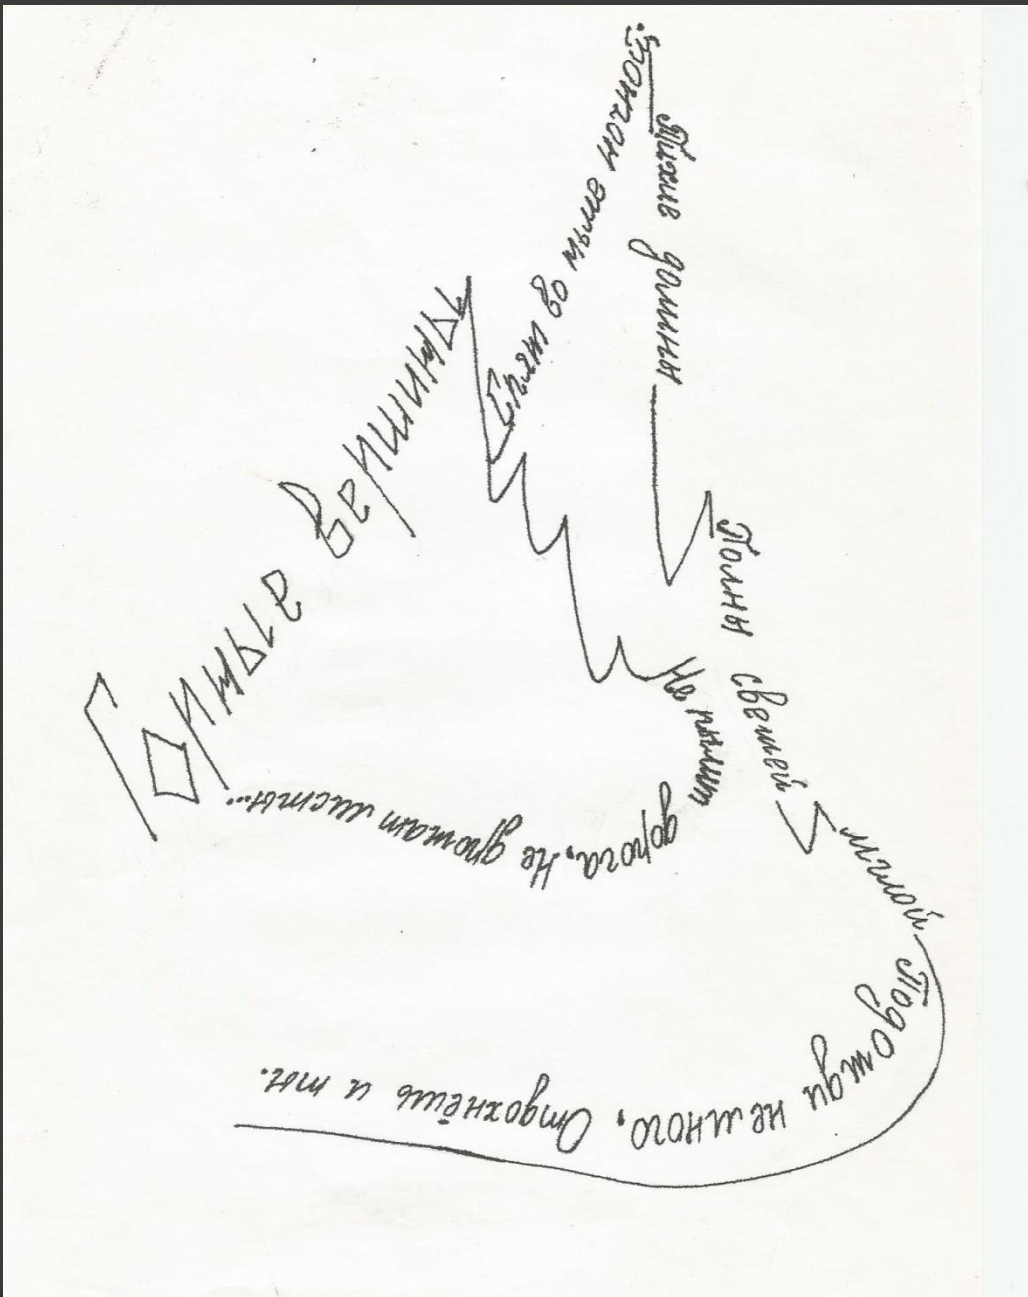 Горные вершины
Спят во тьме ночной.
Тихие долины
Полны свежей
мглой
Не пылит дорога, Не дрожат листы...
Подожди немного, Отдохнёшь и ты.